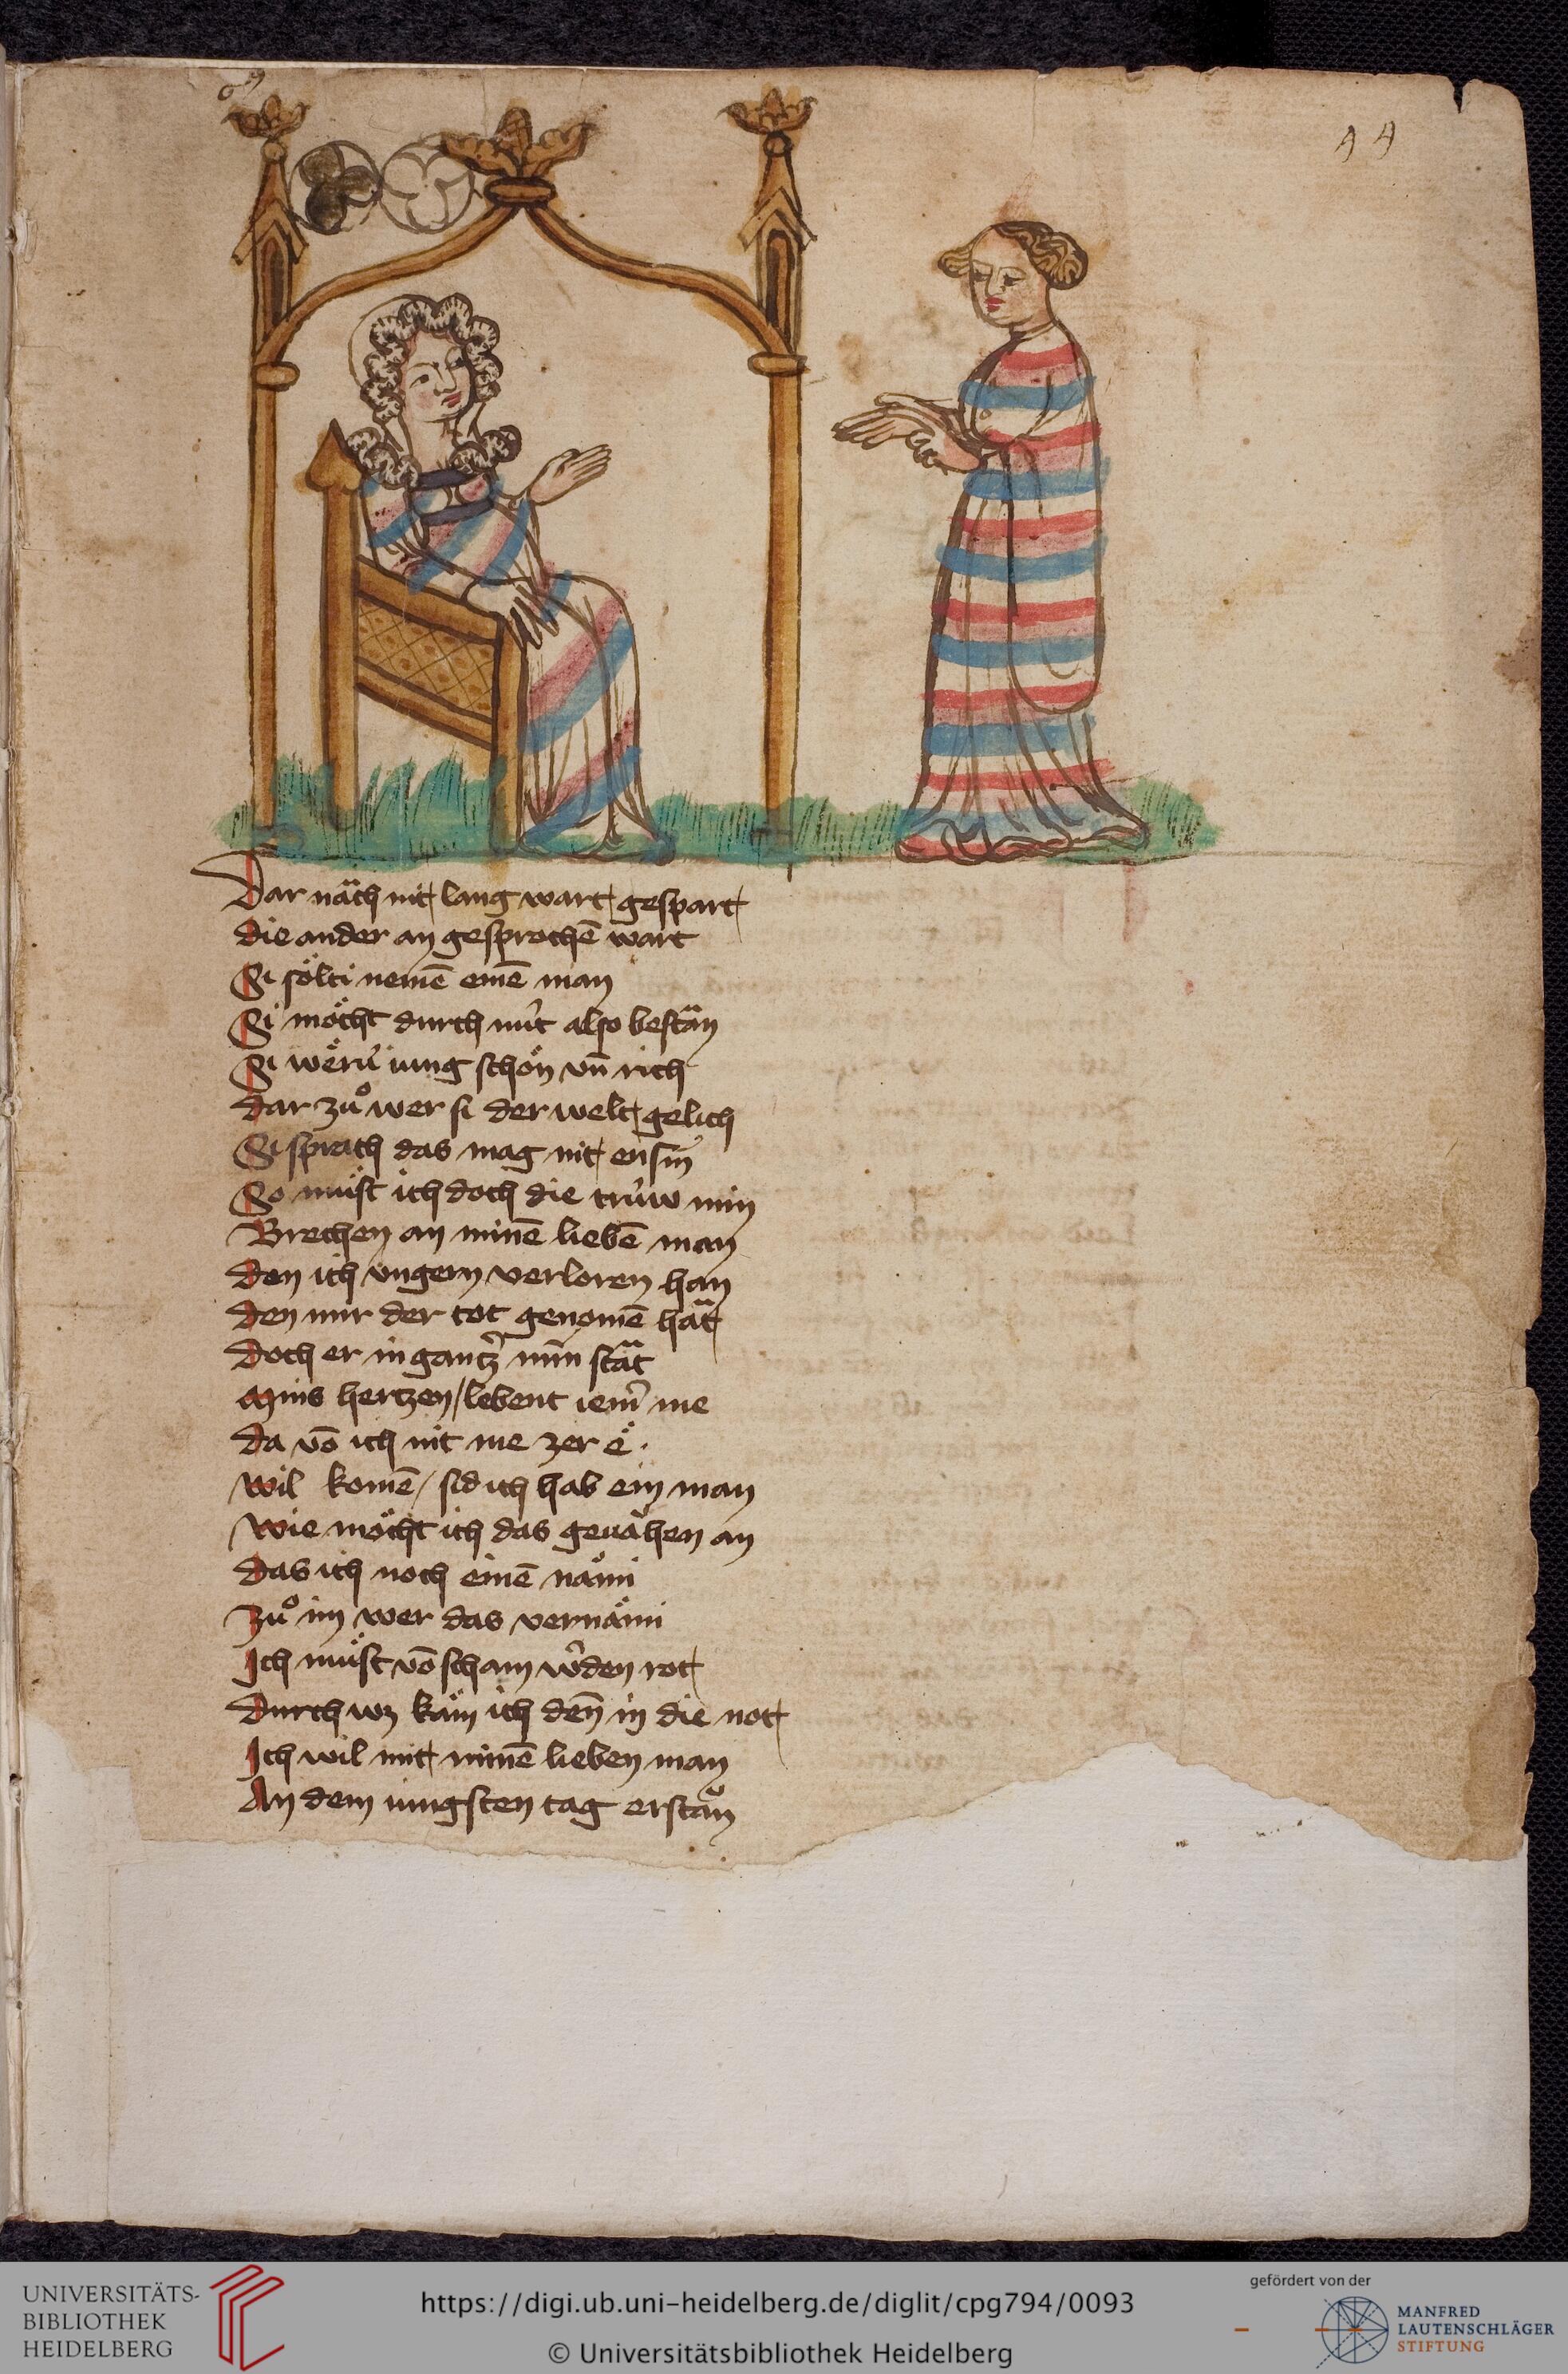 44
Dar nach nit lang wart gespart
die ander an gesprochē wart
Si sölti nemē einē man
Si möcht durch nu̍t also bestan
Si weru̍ iung schön vn̄ rich
dar zuͦ wer si der welt gelich
Si sprach das mag nit ensin
So muͤst ich doch die tru̍w min
Brechen an minē liebē man
den ich vngern verloren han
den mir der tot genomē hat
doch er in gantz̛ min stät
Mins hertzen / lebent iem̛ me
da vō ich nit me zer e .
wil komē / sid ich hab ein man
Wie möcht ich das geuahen an
das ich noch einē nämi
Zuͦ im wer das vernämi
Ich muͤst vō scham w̛den rot
durch wz käm ich den̄ in die not
Ich wil mit minē lieben man
An dem iungsten tag erstan
UNIVERSITÄTS-
BIBLIOTHEK
HEIDELBERG
https://digi.ub.uni-heidelberg.de/diglit/cpg794/0093
© Universitätsbibliothek Heidelberg
gefördert von der
MANFRED
LAUTENSCHLÄGER
STIFTUNG